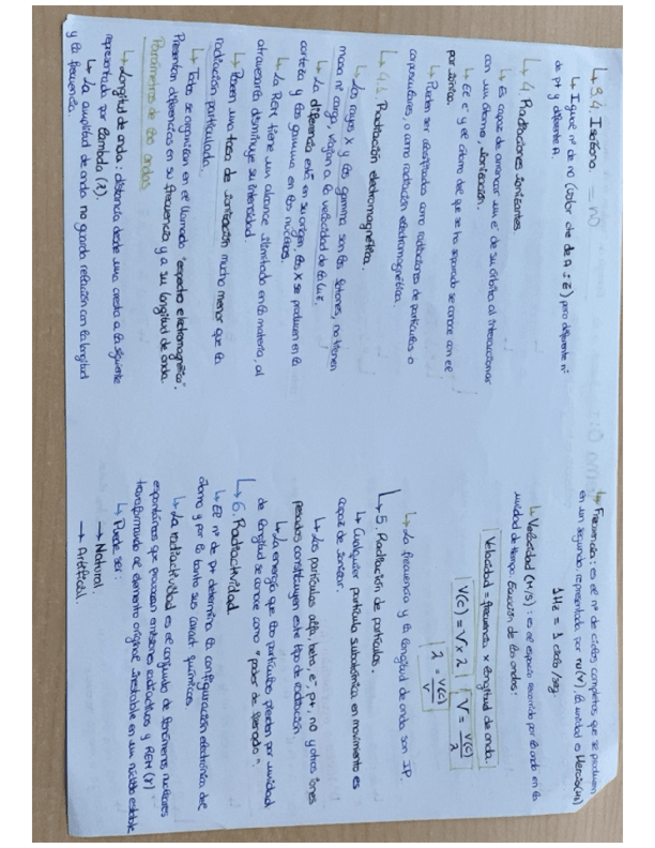 ↳ 3.4. Isótono = n0
↳ Igual nº de n0 (valor de A - Z) pero diferente nº
de p+ y diferente A.
↳ 4. Radiaciones ionizantes
↳ Es capaz de arrancar un e- de su órbita al interaccionar
con un átomo, ionización.
↳ El e- y el átomo del que se ha separado se conoce con el
par iónico.
↳ Pueden ser clasificados como radiaciones de partículas o
corpusculares, o como radiación electromagnética.
↳ 4.1. Radiación electromagnética.
↳ Los rayos X y los gamma son los fotones, no tienen
masa ni carga, viajan a la velocidad de la luz.
↳ La diferencia está en su origen, los X se producen en la
corteza y los gamma en los núcleos.
↳ La REM tiene un alcance ilimitado en la materia, al
atravesarla disminuye su intensidad.
↳ Poseen una tasa de ionización mucho menor que la
radiación particulada.
↳ Todos se organizan en el llamado "espectro electromagnético".
Presentan diferencias en su frecuencia y a su longitud de onda.
Parámetros de las ondas
↳ Longitud de onda: distancia desde una cresta a la siguiente
representada por lambda (λ).
↳ La amplitud de onda no guarda relación con la longitud
y la frecuencia
↳ Frecuencia: es el nº de ciclos completos que se producen
en un segundo, representado por nu (ν), la unidad es Hercio (Hz)
1Hz = 1 ciclo/seg.
↳ Velocidad (M/S): es el espacio recorrido por la onda en la
unidad de tiempo. Ecuación de las ondas:
Velocidad = frecuencia x longitud de onda.
V(c) = ν x λ
ν = V(c)/λ
λ = V(c)/ν
↳ La frecuencia y la longitud de onda son IP.
↳ 5. Radiación de partículas.
↳ Cualquier partícula subatómica en movimiento es
capaz de ionizar.
↳ Las partículas alfa, beta, e-, p+, n0 y otros iones
pesados constituyen este tipo de radiación
↳ La energía que las partículas pierden por unidad
de longitud se conoce como "poder de frenado".
↳ 6. Radiactividad
↳ El nº de p+ determina la configuración electrónica del
átomo y por lo tanto sus caract químicas.
↳ La radiactividad es el conjunto de fenómenos nucleares
espontáneos que provocan emisiones radiactivas y REM (γ)
transformando el elemento original inestable en un núclido estable.
↳ Puede ser:
→ Natural
→ Artificial.